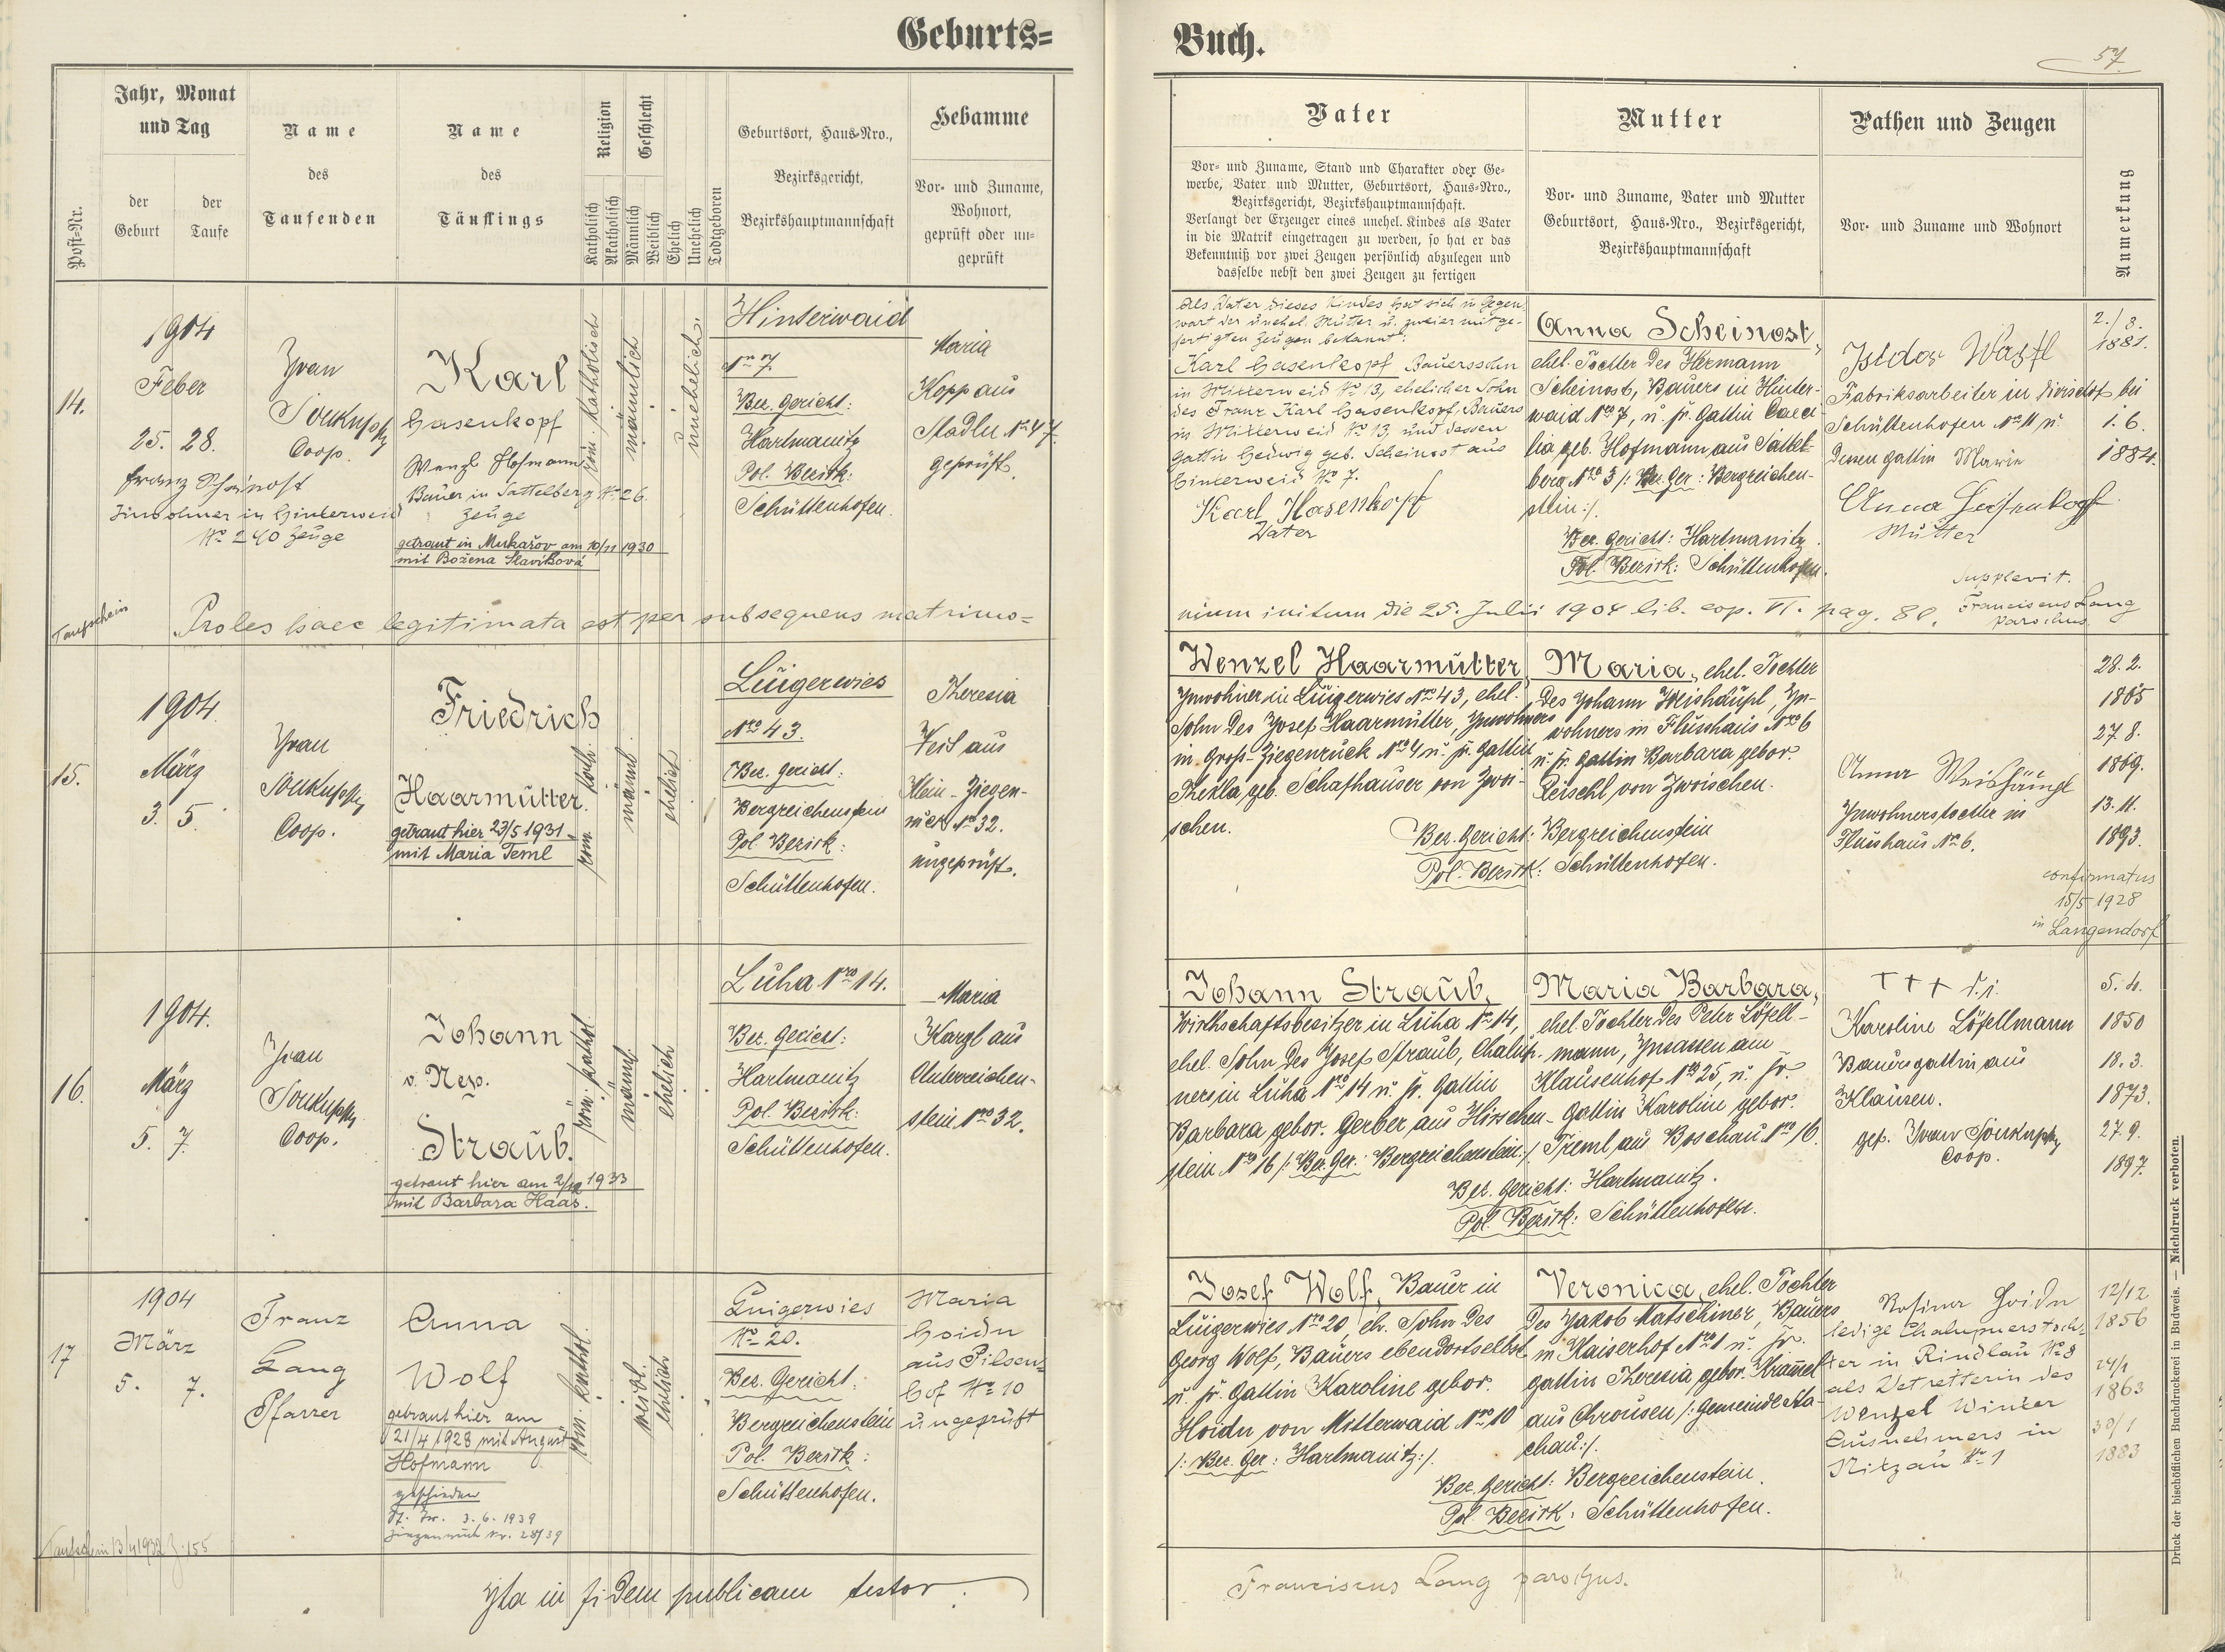 Geburts=
Buch.
57
Post=Nr.
Jahr, Monat
und Tag
der
Geburt
der
Taufe
Name
des
Taufenden
Name
des
Täuflings
Religion
Katholisch
Akatholisch
Geschlecht
Männlich
Weiblich
Ehelich
Unehelich
Todtgeboren
Geburtsort, Haus=Nro.,
Bezirksgericht,
Bezirkshauptmannschaft
Hebamme
Vor= und Zuname,
Wohnort,
geprüft oder un=
geprüft
Vater
Vor= und Zuname, Stand und Charakter oder Ge=
werbe, Vater und Mutter, Geburtsort, Haus=Nro.,
Bezirksgericht, Bezirkshauptmannschaft.
Verlangt der Erzeuger eines unehel. Kindes als Vater
in die Matrik eingetragen zu werden, so hat er das
Bekenntniß vor zwei Zeugen persönlich abzulegen und
dasselbe nebst den zwei Zeugen zu fertigen
Mutter
Vor= und Zuname, Vater und Mutter
Geburtsort, Haus=Nro., Bezirksgericht,
Bezirkshauptmannschaft
Pathen und Zeugen
Vor= und Zuname und Wohnort
Anmerkung
14.
1904
Feber
25. 28.
Franz Scheinost
Inwohner in Hinterweid
No 240 Zeuge
Ivan
Soukupsky
Coop.
Karl
Hasenkopf
Wenzl Hofmann
Bauer in Sattelberg No 26.
Zeuge
getraut in Mukařov am 10/11 1930
mit Božena Slavíková
röm. katholisch
männlich
unehelich.
Hinterwaid
Nro 7
Bez. Gericht:
Hartmanitz
Pol. Bezirk:
Schüttenhofen.
Maria
Kopp aus
Stadln No 47.
geprüft.
Als Vater dieses Kindes hat sich in Gegen=
wart der unehel. Mutter u. zweier mitge=
fertigten Zeugen bekannt:
Karl Hasenkopf Bauerssohn
in Mitterweid No 13, ehelicher Sohn
des Franz Karl Hasenkopf, Bauers
in Mitterweid No 13 und dessen
Gattin Hedwig geb. Scheinost aus
Hinterweid No 7.
Karl Hasenkopf
Vater
Anna Scheinost,
ehel. Tochter des Hermann
Scheinost, Bauers in Hinter-
waid Nro 7, u. sr. Gattin Caeci-
lia geb. Hofmann aus Sattel-
berg Nro 3 /: Bez. Ger: Bergreichen-
stein:/.
Bez. Gericht: Hartmanitz.
Pol. Bezirk: Schüttenhofen.
Isidor Wastl
Fabriksarbeiter in bei
Schüttenhofen No 11 u.
dessen Gattin Marie
Anna Hasenkopf
Mutter
2./3.
1881.
1. 6.
1884.
Taufschein
Proles haec legitimata est per subsequens matrimo=
nium initum die 25. Julii 1904 lib. cop. VI. pag. 80.
Supplevit.
Franciscus Lang
parochus
15.
1904.
März
3. 5.
Ivan
Soukupsky
Coop.
Friedrich
Haarmütter.
getraut hier 23/5 1931
mit Maria Teml
röm. kath.
männl.
ehelich
Luigerwies
Nro 43.
Bez. Gericht:
Bergreichenstein
Pol. Bezirk:
Schüttenhofen.
Theresia
Veit aus
Klein-Ziegen-
ruck No 32.
ungeprüft.
Wenzel Haarmütter,
Inwohner in Luigerwies Nro 43, ehel.
Sohn des Josef Haarmütter, Inwohners
in Groß-Ziegenruck Nro 4 u. sr. Gattin
Thekla, geb. Schafhauser von Zwoi-
schen.
Maria, ehel. Tochter
des Johann Weishäupl, In-
wohners in Flusshaus Nro 6
u. sr. Gattin Barbara gebor.
Reischl von Zwoischen.
Bez. Gericht: Bergreichenstein
Pol. Bezirk: Schüttenhofen.
Anna Weishäupl
Inwohnerstochter in
Flusshaus No 6.
28. 2.
1865
27. 8.
1869.
13. 11.
1893.
confirmatus
15/5 1928
in Langendorf
16.
1904.
März
5. 7.
Ivan
Soukupsky
Coop.
Johann
v. Nep.
Straub.
getraut hier am 2/12 1933
mit Barbara Haas.
röm. kathol.
männl.
ehelich
Luha Nro 14.
Bez. Gericht:
Hartmanitz
Pol. Bezirk:
Schüttenhofen.
Maria
Kargl aus
Unterreichen-
stein Nro 32.
Johann Straub,
Wirthschaftsbesitzer in Luha Nro 14,
ehel. Sohn des Josef Straub, Chalup-
ners in Luha Nro 14 u. sr. Gattin
Barbara gebor. Gerber aus Hirschen-
stein Nro 16 /: Bez. Ger: Bergreichenstein:/
Maria Barbara,
ehel. Tochter des Peter Löfell-
mann, Insassen am
Klausenhof Nro 25, u. sr.
Gattin Karoline gebor.
Treml aus Boschau Nro 16.
Bez. Gericht: Hartmanitz.
Pol. Bezirk: Schüttenhofen.
+ + +
Karoline Löfellmann
Bauersgattin aus
Klausen.
gef. Ivan Soukupsky
Coop.
5. 4.
1850
18. 3.
1873.
27. 9.
1897.
17
1904
März
5. 7.
Taufschein 13/4 1932 Z. 155
Franz
Lang
Pfarrer
Anna
Wolf
getraut hier am
21/4 1928 mit August
Hofmann
geschieden
3. 6. 1939
Ziegenruck Nr. 28/39
röm. kathol.
weibl.
ehelich
Luigerwies
No 20.
Bez. Gericht:
Bergreichenstein
Pol. Bezirk:
Schüttenhofen.
Maria
Hoidn
aus Pilsen=
hof No 10
ungeprüft
Josef Wolf, Bauer in
Luigerwies Nro 20, eh. Sohn des
Georg Wolf, Bauers ebendortselbst
u. sr. Gattin Karoline gebor.
Hoidn von Mitterwaid Nro 10
/: Bez. Ger: Hartmanitz:/.
Veronica, ehel. Tochter
des Jakob Matschiner, Bauers
in Kaiserhof Nro 1 u. sr.
Gattin Theresia gebor. Kram̅el
aus Chrousen /: Gemeinde Sta-
chau:/.
Bez. Gericht: Bergreichenstein.
Pol. Bezirk: Schüttenhofen.
Rosina Hoidn
ledige Chalupnerstoch=
ter in Rindlau No 8
als Vetretterin des
Wenzel Winter
Ausnehmers in
Nitzau No 1
12/12
1856
24/1
1863
30/1
1883
Ita in fidem publicam testor:
Franciscus Lang parochus.
Druck der bischöflichen Buchdruckerei in Budweis. — Nachdruck verboten.